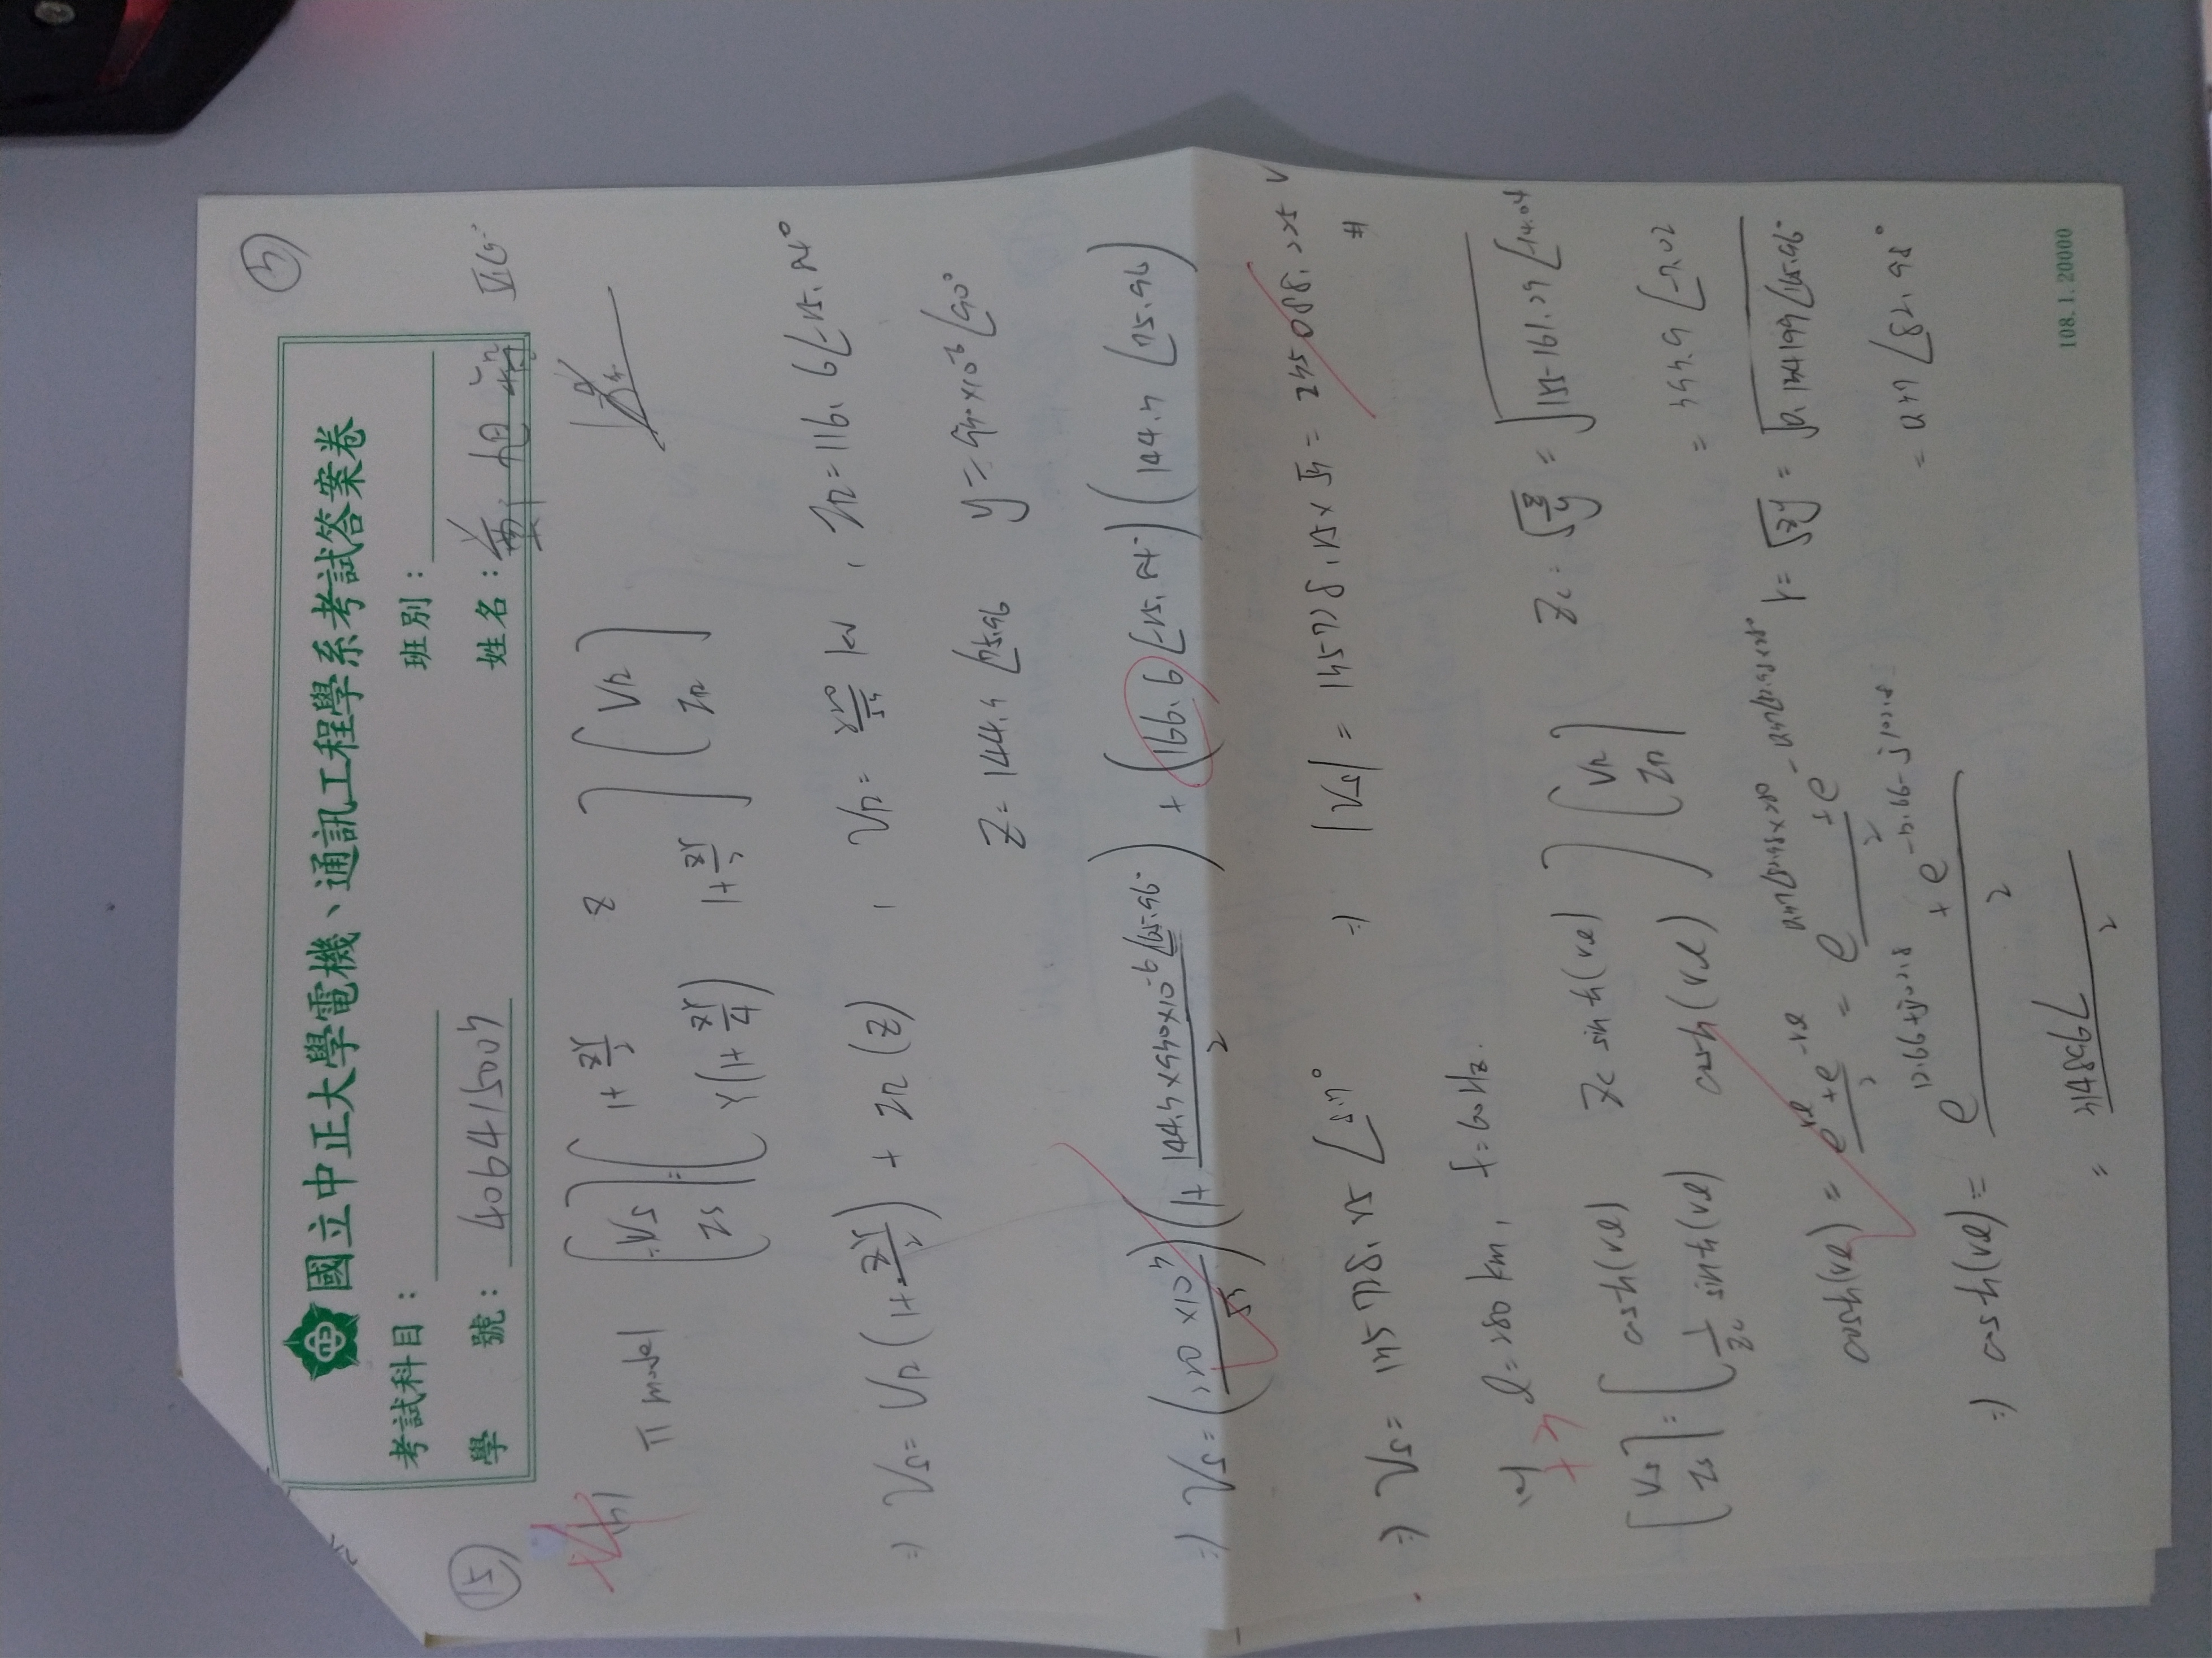 3
國立中正大學電機、通訊工程學系考試答案卷
考試科目：
班別：
學 號： 406415003
姓名：鄭旭
15
+4
π model [Vs Is] = [1+ZY/2 Z Y(1+ZY/4) 1+ZY/2] [VR IR]
⇒ Vs = VR (1+ZY/2) + IR (Z) , VR = 220/√3 kV , IR = 116.6∠-25.84°
Z = 144.3 ∠75.96 y = 930×10^-6 ∠90°
⇒ Vs = (220×10^3/√3) (1 + 144.3×930×10^-6∠165.96°/2) + (166.6∠-25.84°) (144.3 ∠75.96)
⇒ Vs = 135728.25 ∠5.7° ⇒ |Vs| = 135728.25×√3 = 235088.225 V #
l = 280 km, f = 60 Hz.
+3
[Vs Is] = [cosh(rl) Zc sinh(rl) 1/Zc sinh(rl) cosh(rl)] [VR IR]
Zc = √(z/y) = √(155161.29∠-14.04
= 393.9 ∠-7.02
cosh(rl) = (e^rl + e^-rl)/2 = (e^0.37∠82.98×280 + e^-0.37∠82.98×280)/2
r = √zy = √(0.134199∠165.96°
= 0.37 ∠82.98°
⇒ cosh(rl) = (e^12.66+j102.8 + e^-12.66-j102.8)/2
= 314896∠ /2
108.1.20000